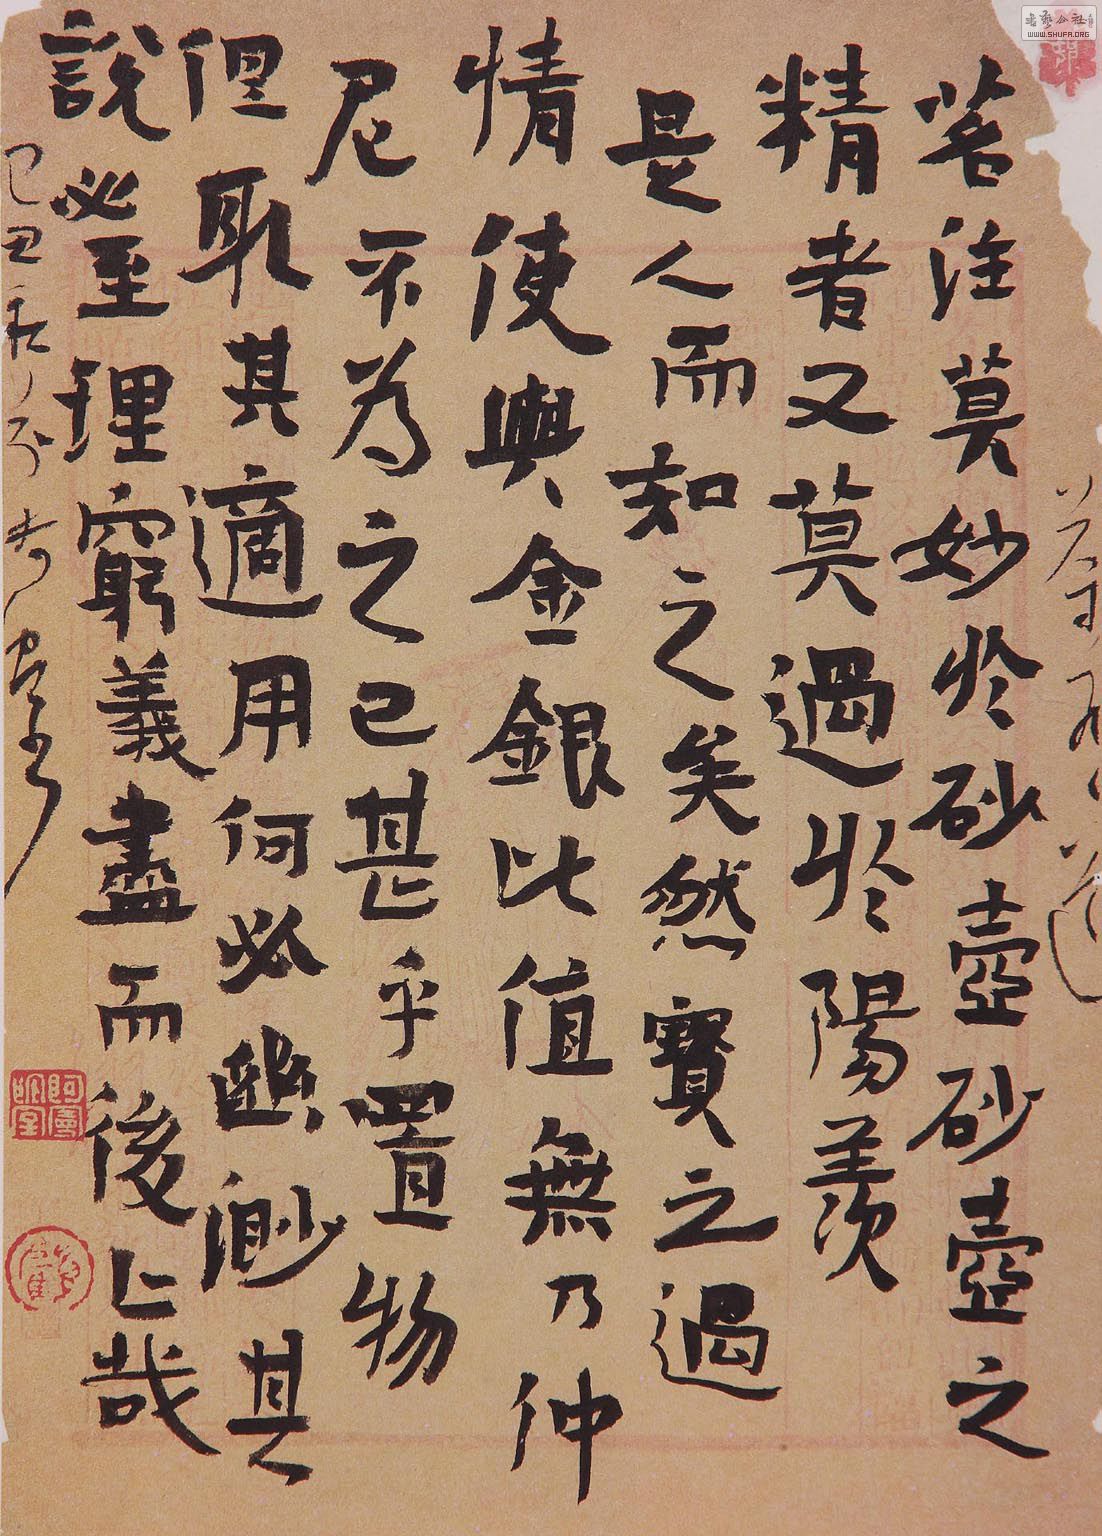 茗注莫妙於砂壺砂壺之
精者又莫過於陽羨
是人而知之矣然寶之過
情使與金銀比值無乃仲
尼不為之已甚乎置物
但取其適用何必幽渺其
說必至理窮義盡而後止哉
己丑秋
書艺公社
WWW.SHUFA.ORG